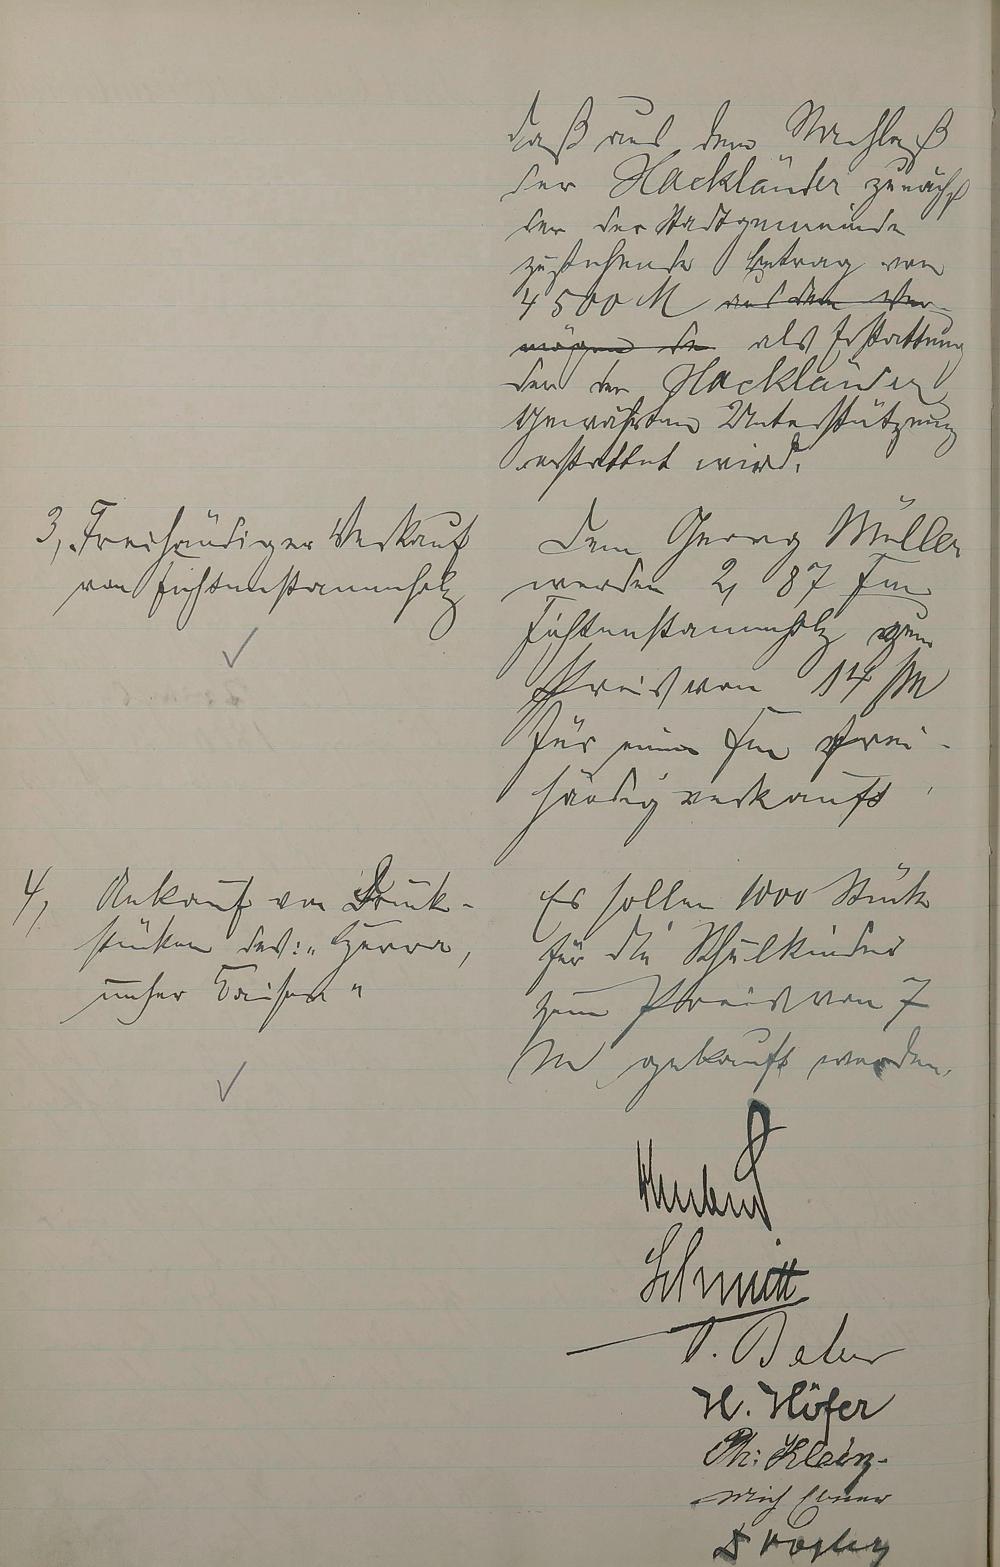 daß aus dem Nachlaß
der Hackländer zunächst
der der Stadtgemeinde
zustehende Betrag von
4500 M aus dem Ver-
mögen de als Erstattung
der der Hackländer
gewährten Unterstützung
erstattet wird.
3, Freihändiger Verkauf
von Fichtenstammholz
Dem Georg Müller
werden 2,87 Fm
Fichtenstammholz zum
Preis von 14 M
für einen Fm frei-
händig verkauft.
4, Ankauf von Druck-
stücken des: "Hurra,
unser Kaiser"
Es sollen 1000 Stück
für die Schulkinder
zum Preis von 7
M gekauft werden.
Schmitt
H. Höfer
Ph: Klein